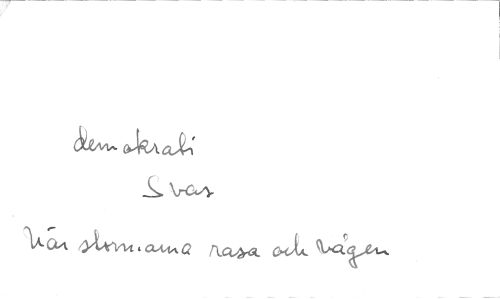 demokrati
Svar
När stormarna rasa och vågen